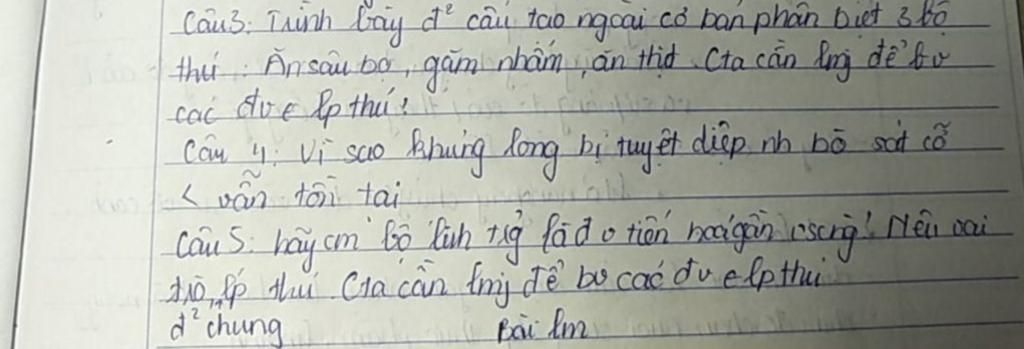 Câu3: Trình bày đ² cấu tạo ngoài cơ bản phân biệt 3 bộ
thú: Ăn sâu bọ, gặm nhấm, ăn thịt. Cta cần lmj để bv
các đv ∈ lp thú?
Câu 4: Vì sao khủng long bị tuyệt diệp nh bò sát cỡ
< vẫn tồn tại
Câu 5: hãy cm bộ linh trg là đ v tiến hoá gần
! Nêu vai
trò lp thú. Cta cần lmj để bv các đv ∈ lp thú
đ² chung Bài lm